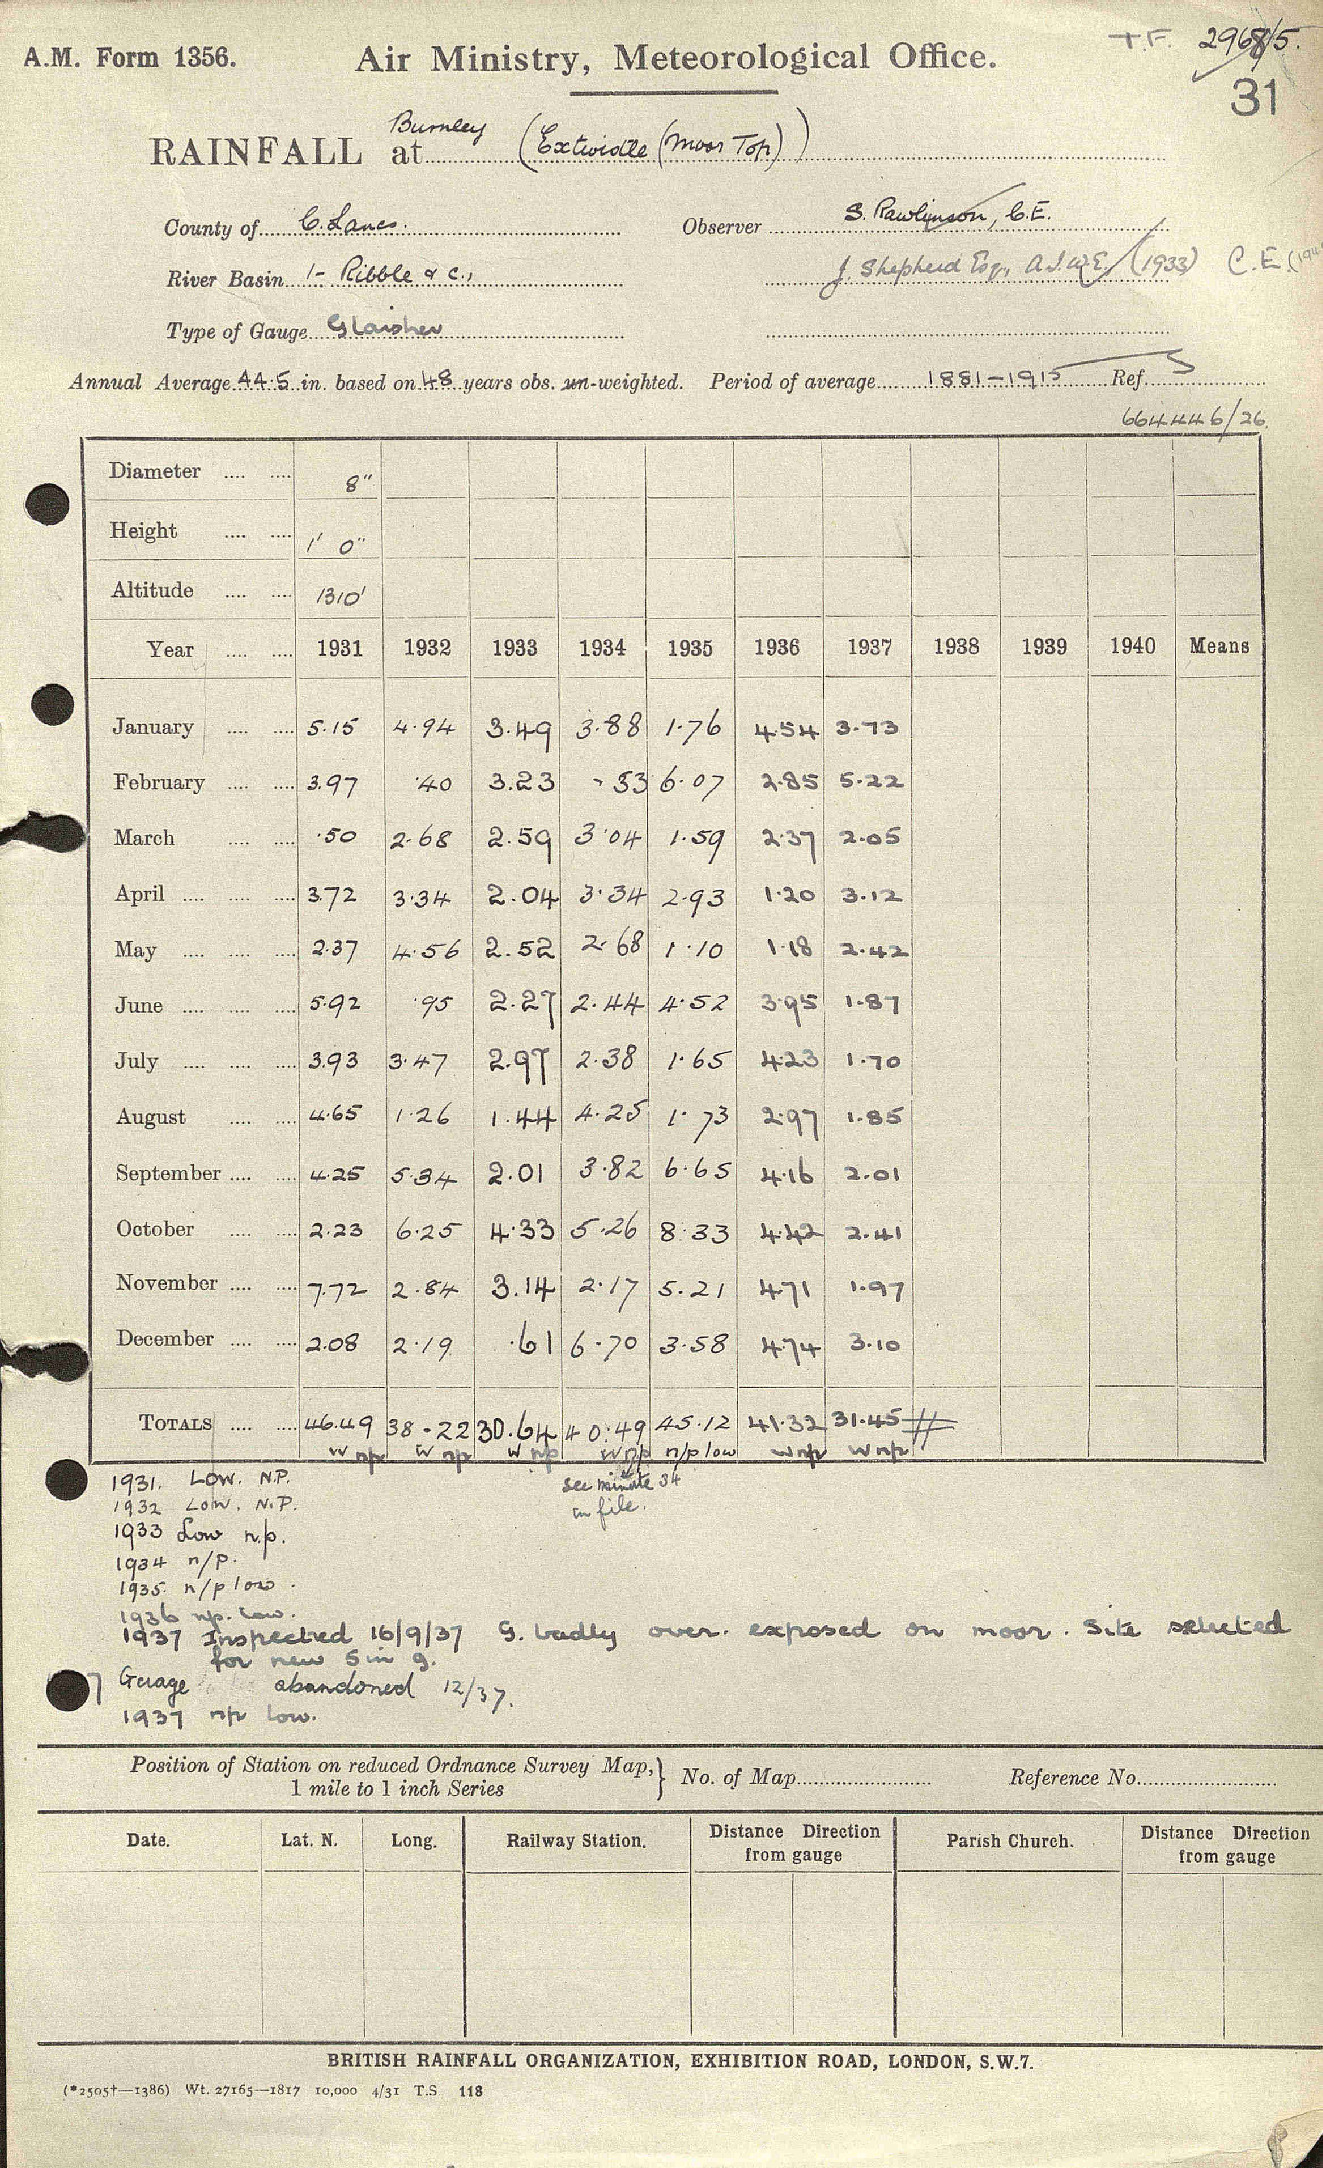 A.M. Form 1356. Air Ministry, Meteorological Office. T.F. 2968/5.
31
RAINFALL at Burnley (Extwistle (Moor Top))
County of C. Lancs. Observer S. Rawlinson, C.E.
River Basin 1- Ribble & c., J. Shepherd Esq., A.I.W.E. (1933) C.E.
Type of Gauge Glaisher
Annual Average 44.5 in. based on 48 years obs. un-weighted. Period of average 1881-1915 Ref.
664446/26
Diameter 8"
Height 1' 0"
Altitude 1310'
Year 1931 1932 1933 1934 1935 1936 1937 1938 1939 1940 Means
January 5.15 4.94 3.49 3.88 1.76 4.54 3.73
February 3.97 .40 3.23 .53 6.07 2.85 5.22
March .50 2.68 2.59 3.04 1.59 2.37 2.05
April 3.72 3.34 2.04 3.34 2.93 1.20 3.12
May 2.37 4.56 2.52 2.68 1.10 1.18 2.42
June 5.92 .95 2.27 2.44 4.52 3.95 1.87
July 3.93 3.47 2.97 2.38 1.65 4.23 1.70
August 4.65 1.26 1.44 4.25 1.73 2.97 1.85
September 4.25 5.34 2.01 3.82 6.65 4.16 2.01
October 2.23 6.25 4.33 5.26 8.33 4.42 2.41
November 7.72 2.84 3.14 2.17 5.21 4.71 1.97
December 2.08 2.19 .61 6.70 3.58 4.74 3.10
TOTALS 46.49 38.22 30.64 40.49 45.12 41.32 31.45 #
w np w np w np w np n/p low w np w np
see minute 34
in file.
1931. Low. N.P.
1932 Low. N.P.
1933 Low n.p.
1934 n/p.
1935. n/p low.
1936 np. low.
1937 Inspected 16/9/37 G. badly over-exposed on moor. Site selected
for new 5 in g.
Guage abandoned 12/37.
1937 np low.
Position of Station on reduced Ordnance Survey Map, 1 mile to 1 inch Series } No. of Map Reference No.
Date. Lat. N. Long. Railway Station. Distance Direction from gauge Parish Church. Distance Direction from gauge
BRITISH RAINFALL ORGANIZATION, EXHIBITION ROAD, LONDON, S.W.7.
(*2505†—1386) Wt. 27165—1817 10,000 4/31 T.S 118